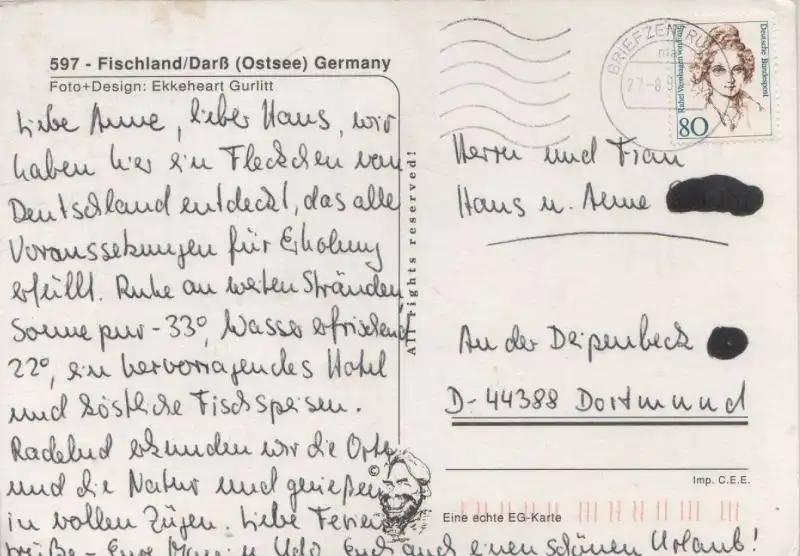 597 - Fischland/Darß (Ostsee) Germany
Foto+Design: Ekkeheart Gurlitt
Liebe Anne, lieber Hans, wir
haben hier ein Fleckchen von
Deutschland entdeckt, das alle
Voraussetzungen für Erholung
erfüllt. Ruhe an weiten Stränden,
Sonne pur - 33°, Wasser erfrischend
22°, ein hervorragendes Hotel
und köstliche Fischspeisen.
Radelnd erkunden wir die Orte
und die Natur und genießen
in vollen Zügen. Liebe Ferien
grüße - Eure u. Udo. Euch auch einen schönen Urlaub!
All rights reserved!
©
BRIEFZENTRUM
Deutsche Bundespost
Rahel Varnhagen von Ense
80
Herrn und Frau
Hans u. Anne
An der Deipenbeck
D-44388 Dortmund
Imp. C.E.E.
Eine echte EG-Karte